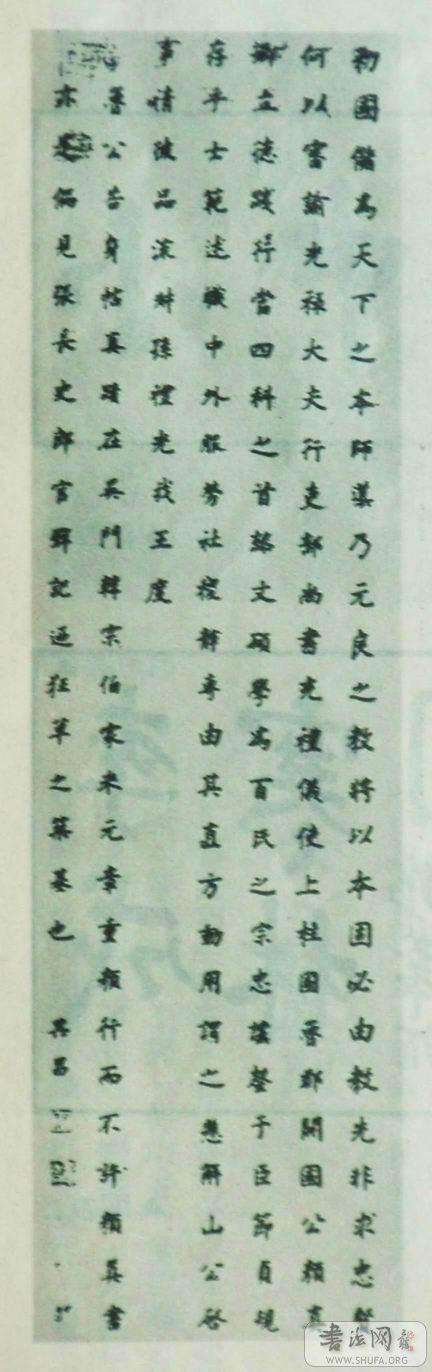 勑國儲為天下之本師導乃元良之教將以本固必由教先非求忠賢
何以審諭光祿大夫行吏部尚書充禮儀使上柱國魯郡開國公顏真
卿立德踐行當四科之首懿文碩學為百氏之宗忠讜罄于臣節貞規
存乎士範述職中外服勞社稷靜專由其直方動用謂之懸解山公啓
事清彼品流叔孫禮光我王度
魯公告身帖真蹟在吳門韓宗伯家米元章重顏行而不許顏真書
亦是偏見張長史郎官壁記迺狂草之築基也 其昌
書法网
WWW.SHUFA.ORG